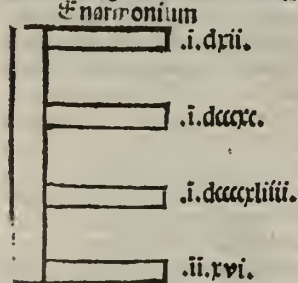 Enarmonium
.i.dxii.
.i.dcccxc.
.i.dccccxliiii.
.ii.xvi.